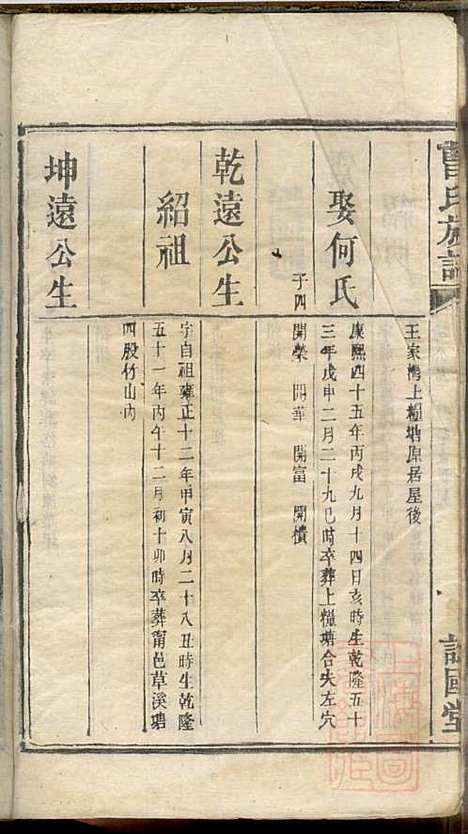 曹氏族譜
王家灣上糧塘原居屋後
娶何氏
康熙四十五年丙戌九月十四日亥時生乾隆五十
三年戊申二月二十九巳時卒葬上糧塘合夫左穴
子四 開榮 開華 開富 開櫝
乾遠公生
紹祖
字自祖雍正十二年甲寅八月二十八丑時生乾隆
五十一年丙午十二月初十卯時卒葬甯邑草溪塘
四股竹山內
坤遠公生
國堂